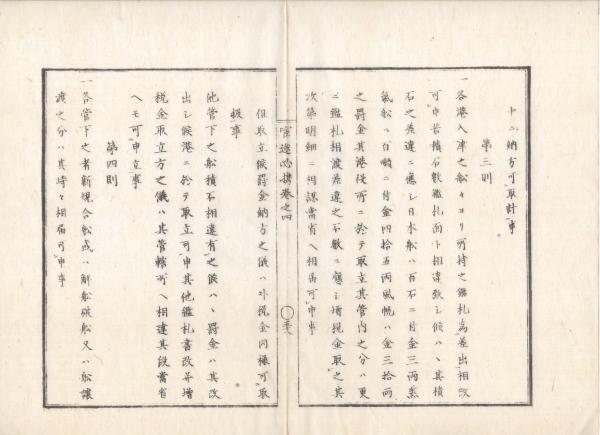 十二納方可取計事
第三則
一各港入津之船々ヨリ所持之鑑札為差出相改
可申若積石数鑑札面ト相違致シ候ハヽ其積
石之差違ニ應シ日本船ハ百石ニ付金三両蒸
氣船ハ百噸ニ付金四拾五両風帆ハ金三拾両
之罰金其港役所ニ於テ取立其管内之分ハ更
ニ鑑札相渡差違之石数ニ應シ増税金取之其
次第明細ニ相認當省ヘ相届可申事
但取立候罰金納方之儀ハ外税金同様可取
扱事
他管下之船積石相違有之候ハヽ罰金ハ其改
出シ候港ニ於テ取立可申其他鑑札書改并増
税金取立方之儀ハ其管轄所ヘ相達其段當省
ヘモ可申立事
第四則
一各管下之者新規合船或ハ解船破船又ハ船譲
渡之分ハ其時々相届可申事